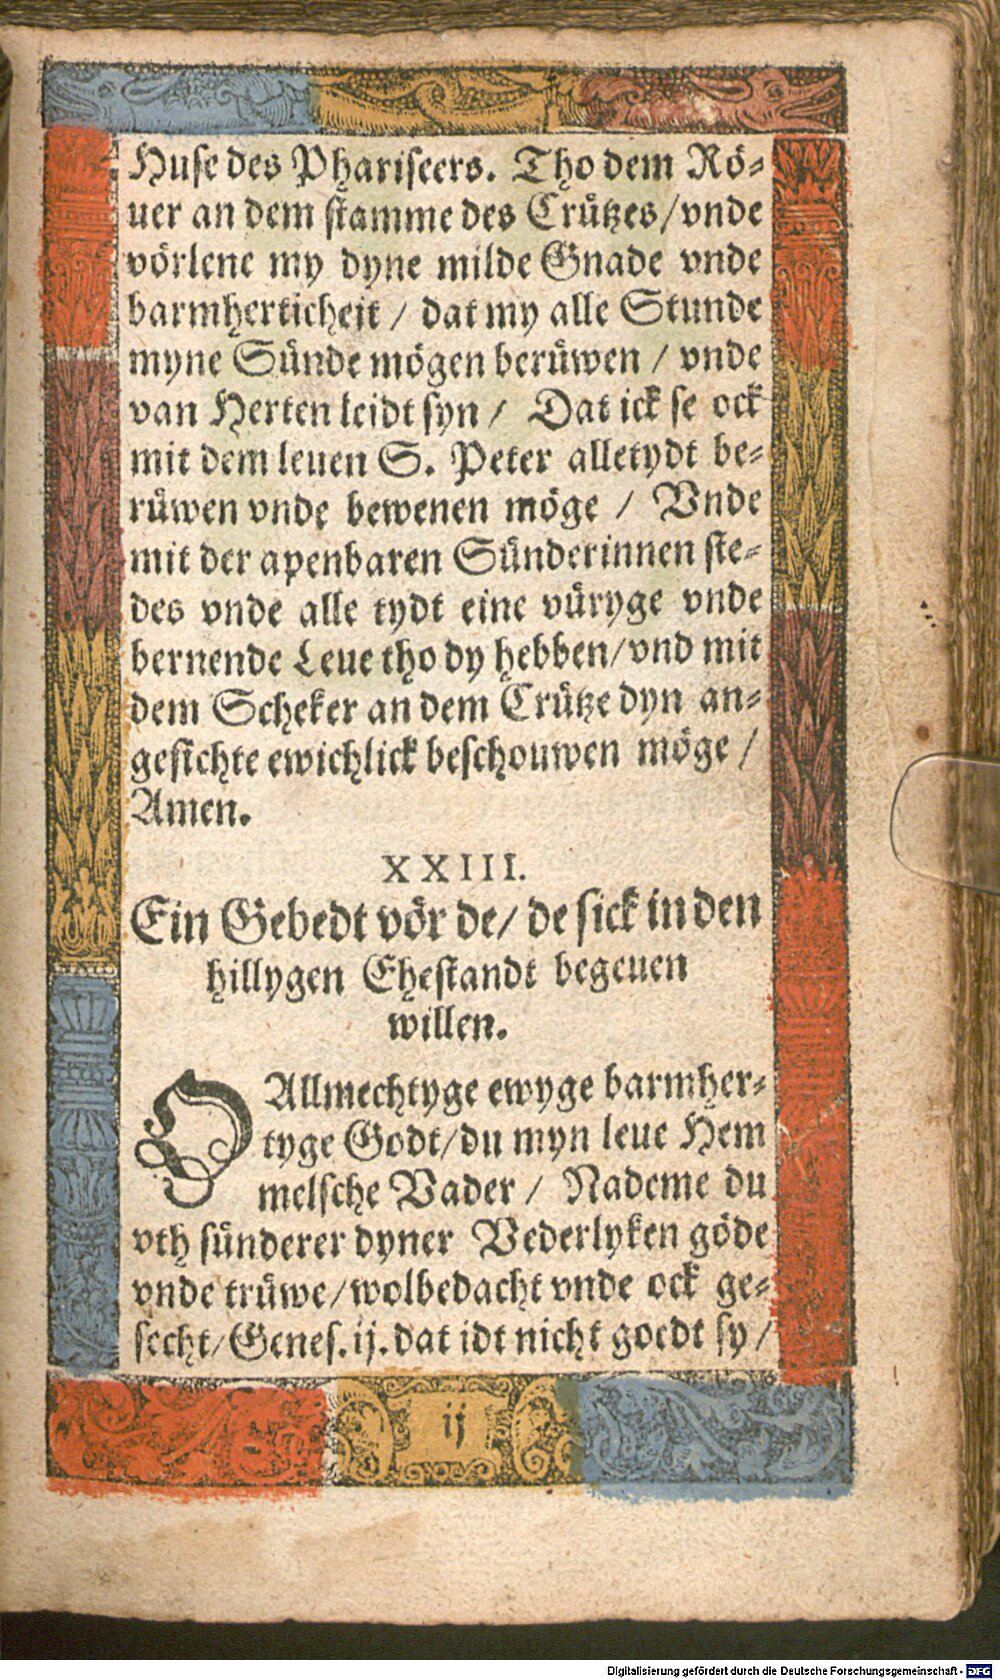 Huse des Phariseers. Tho dem Rö-
uer an dem stamme des Crützes/vnde
vörlene my dyne milde Gnade vnde
barmherticheit / dat my alle Stunde
myne Sünde mögen berüwen / vnde
van Herten leidt syn / Dat ick se ock
mit dem leuen S. Peter alletydt be-
rüwen vnde bewenen möge / Vnde
mit der apenbaren Sünderinnen ste-
des vnde alle tydt eine vüryge vnde
bernende Leue tho dy hebben/vnd mit
dem Scheker an dem Crütze dyn an-
gesichte ewichlick beschouwen möge /
Amen.
XXIII.
Ein Gebedt vör de/ de sick in den
hillygen Ehestandt begeuen
willen.
O Allmechtyge ewyge barmher-
tyge Godt/du myn leue Hem
melsche Vader / Nademe du
vth sünderer dyner Vederlyken göde
vnde trüwe/wolbedacht vnde ock ge-
secht/Genes.ij.dat idt nicht goedt sy /
ij
Digitalisierung gefördert durch die Deutsche Forschungsgemeinschaft - DFG